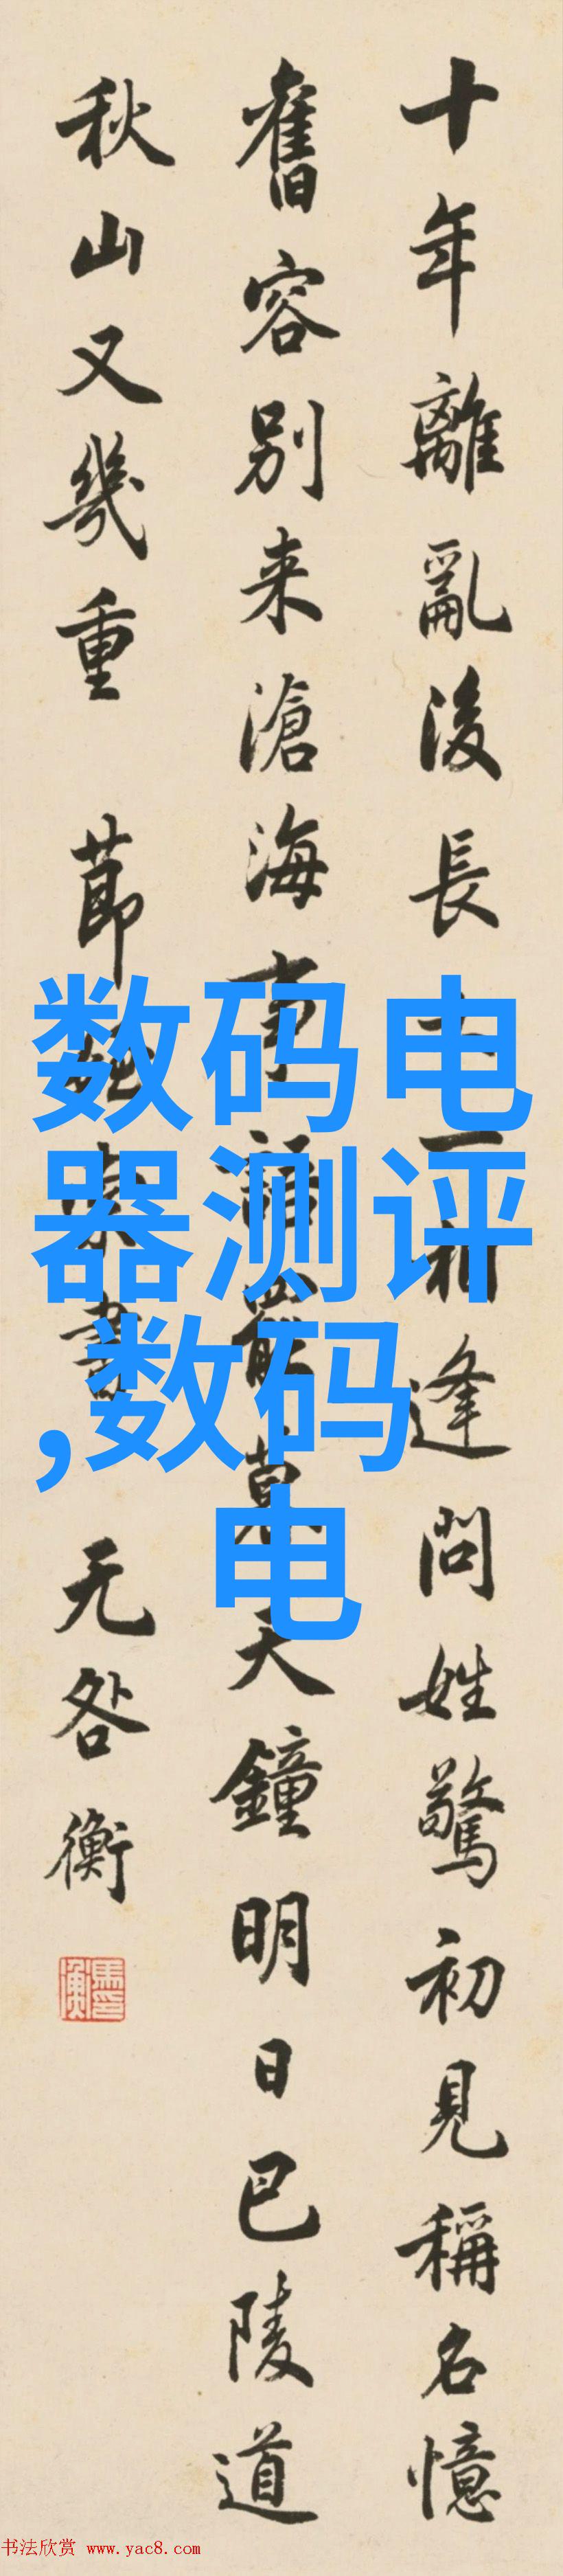 十年離亂後長大一相逢問姓驚初見稱名憶
舊容別来滄海事語罷暮天鐘明日巴陵道
秋山又幾重 莭 書 无咎衡
数码电
器测评
,数码
电
书法欣赏 www.yac8.com